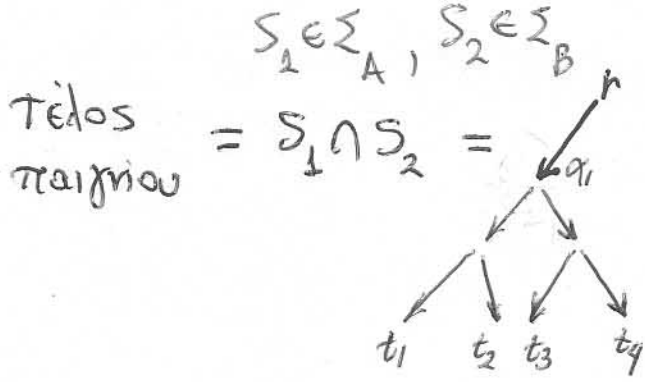 S₁ ∈ Σ_A , S₂ ∈ Σ_B
τέλος παιγνίου = S₁ ∩ S₂ =
r
α₁
t₁ t₂ t₃ t₄